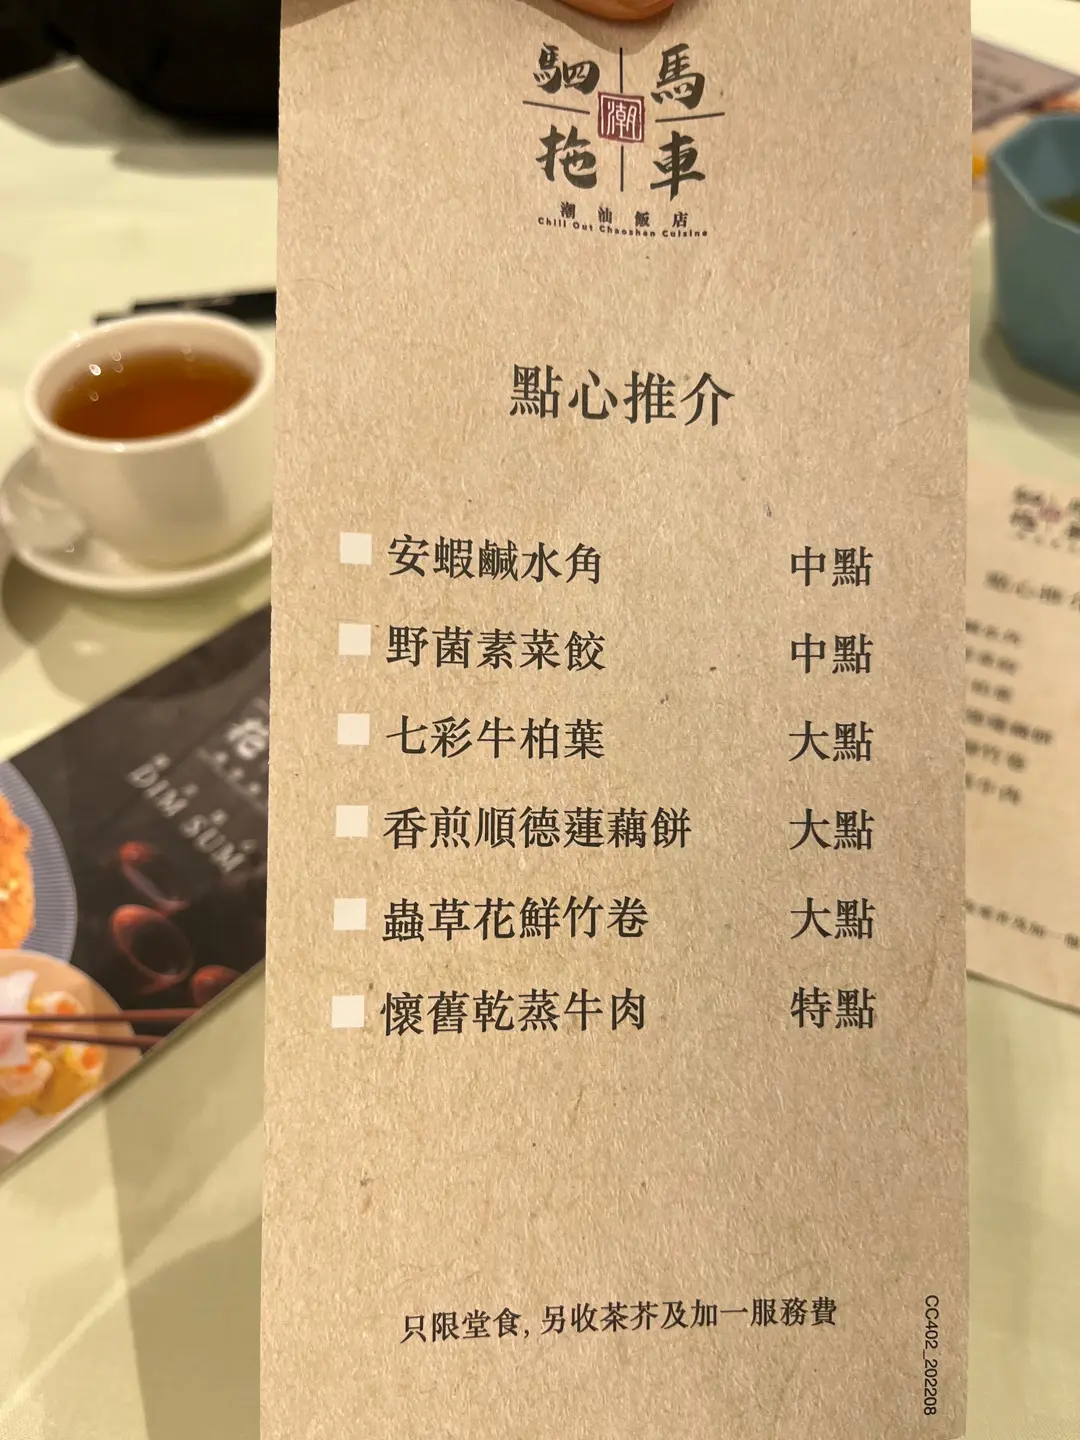 駟馬
潮
拖車
潮汕飯店
Chill Out Chaoshan Cuisine
點心推介
安蝦鹹水角 中點
野菌素菜餃 中點
七彩牛柏葉 大點
香煎順德蓮藕餅 大點
蟲草花鮮竹卷 大點
懷舊乾蒸牛肉 特點
只限堂食, 另收茶芥及加一服務費
CC402_202208
DIM SUM